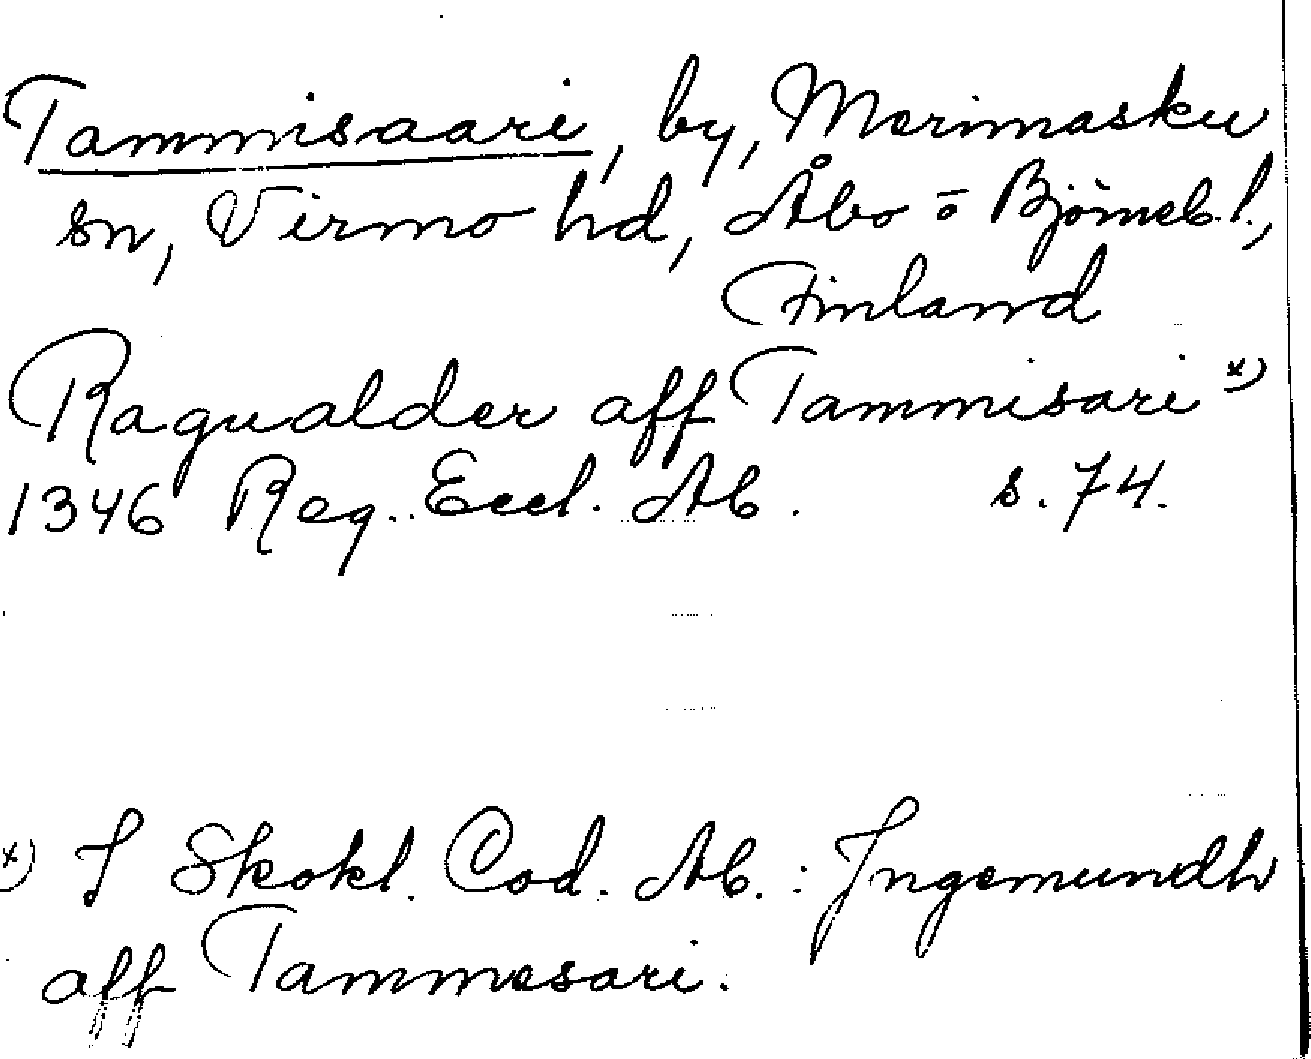 Tammisaari, by, Merimasku
sn, Virmo hd, Åbo o Björneb. l.,
Finland
Ragualder aff Tammisari x)
1346 Reg. Eccl. Ab. s. 74.
x) I Skokl. Cod. Ab.: Ingemundh
aff Tammesari.